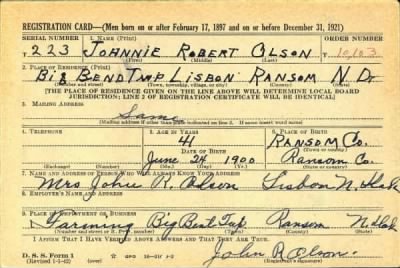 REGISTRATION CARD—(Men born on or after February 17, 1897 and on or before December 31, 1921)
SERIAL NUMBER 1. NAME (Print) ORDER NUMBER
T 223 JOHNNIE ROBERT OLSON 10103
(First) (Middle) (Last)
2. PLACE OF RESIDENCE (Print)
BIG BEND TWP LISBON RANSOM N.D.
(Number and street) (Town, township, village, or city) (County) (State)
[THE PLACE OF RESIDENCE GIVEN ON THE LINE ABOVE WILL DETERMINE LOCAL BOARD
JURISDICTION; LINE 2 OF REGISTRATION CERTIFICATE WILL BE IDENTICAL]
3. MAILING ADDRESS
Same
[Mailing address if other than place indicated on line 2. If same insert word same]
4. TELEPHONE 5. AGE IN YEARS 6. PLACE OF BIRTH
41 RANSOM CO.
DATE OF BIRTH (Town or county)
June 24 1900 Ransom Co.
(Exchange) (Number) (Mo.) (Day) (Yr.) (State or country)
7. NAME AND ADDRESS OF PERSON WHO WILL ALWAYS KNOW YOUR ADDRESS
Mrs John R. Olson Lisbon N. Dak
8. EMPLOYER'S NAME AND ADDRESS
9. PLACE OF EMPLOYMENT OR BUSINESS
Farming Big Bend Twp Ransom N. Dak
(Number and street or R. F. D. number) (Town) (County) (State)
I AFFIRM THAT I HAVE VERIFIED ABOVE ANSWERS AND THAT THEY ARE TRUE.
D. S. S. Form 1 GPO John R Olson
(Revised 1-5-42) (over) (Registrant's signature)